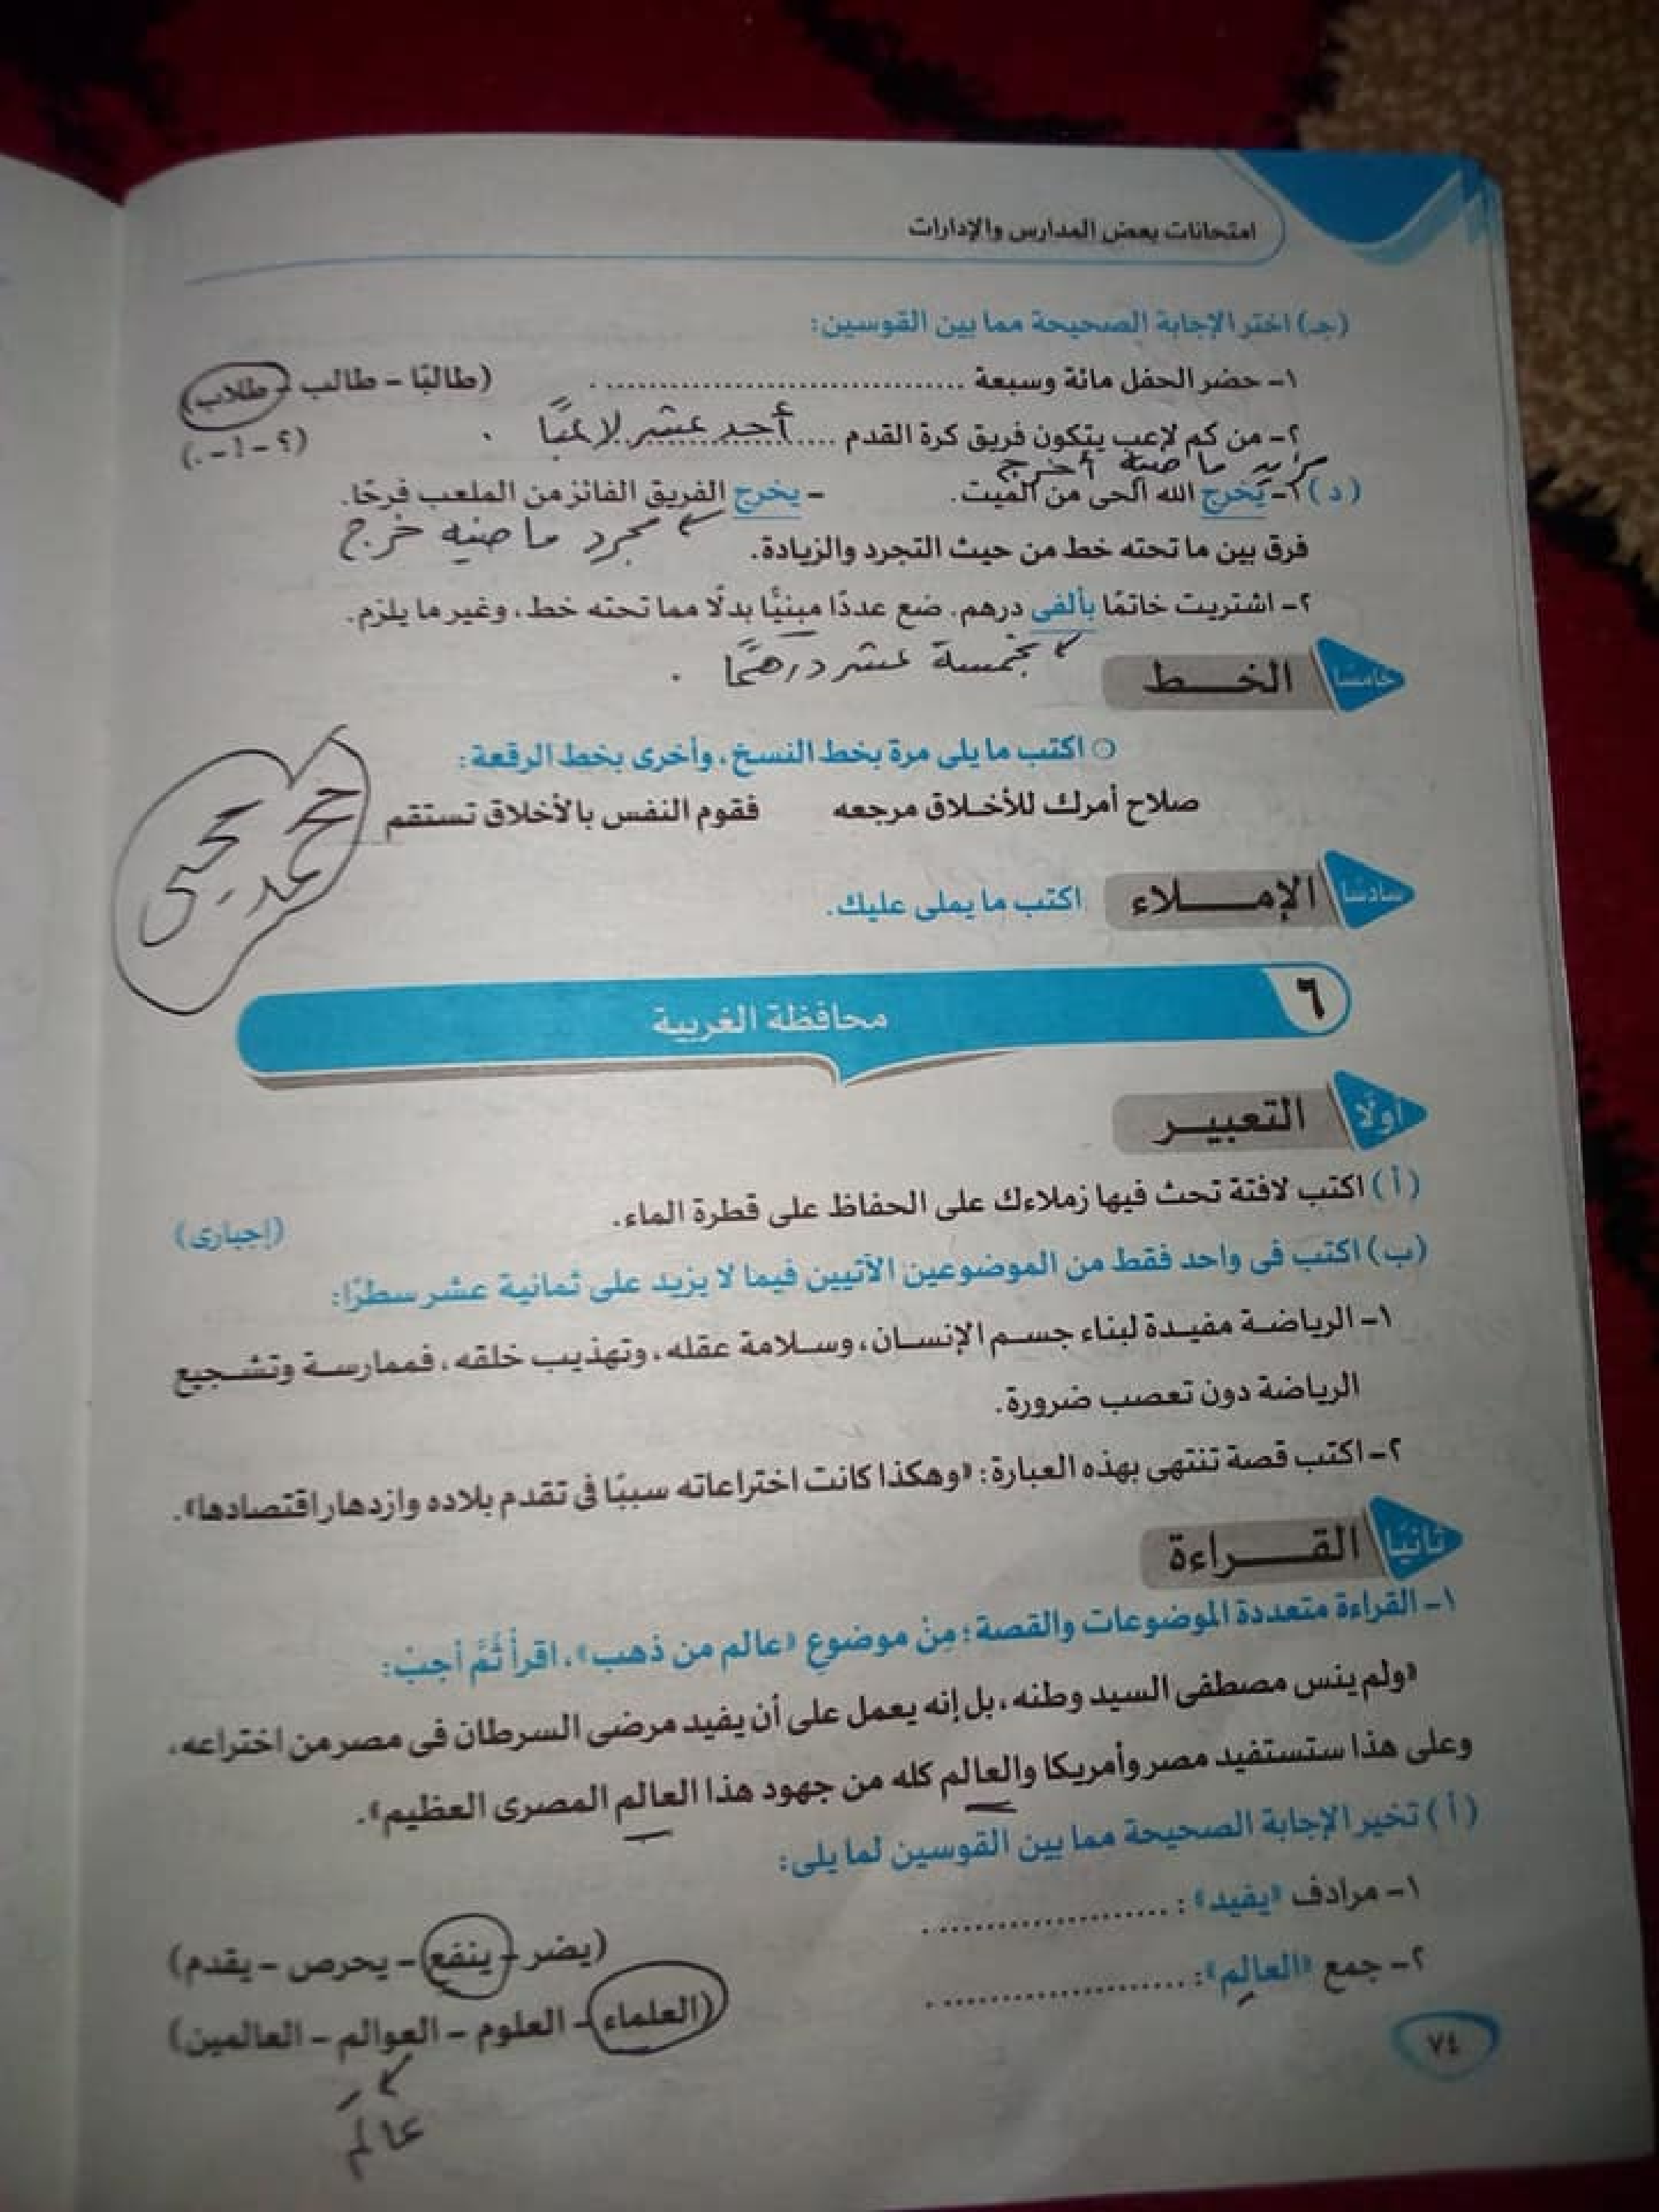 امتحانات بعض المدارس والإدارات
(جـ) اختر الإجابة الصحيحة مما بين القوسين:
١- حضر الحفل مائة وسبعة .................................. . (طالبًا - طالب - طلاب)
٢- من كم لاعب يتكون فريق كرة القدم .... أحد عشر لاعبًا . (؟ - ! - .)
مزيد ماضيه أخرج
(د) ١- يُخرج الله الحى من الميت. - يخرج الفريق الفائز من الملعب فرحًا.
فرق بين ما تحته خط من حيث التجرد والزيادة. مجرد ماضيه خرج
٢- اشتريت خاتمًا بألفى درهم. ضع عددًا مبنيًّا بدلًا مما تحته خط، وغير ما يلزم.
بخمسة عشر درهمًا .
خامسًا الخـــط
اكتب ما يلى مرة بخط النسخ، وأخرى بخط الرقعة:
صلاح أمرك للأخلاق مرجعه فقوم النفس بالأخلاق تستقم
محمد يحيى
سادسًا الإمـــلاء اكتب ما يملى عليك.
٦ محافظة الغربية
أولًا التعبيـــر
(أ) اكتب لافتة تحث فيها زملاءك على الحفاظ على قطرة الماء. (إجبارى)
(ب) اكتب فى واحد فقط من الموضوعين الآتيين فيما لا يزيد على ثمانية عشر سطرًا:
١- الرياضة مفيدة لبناء جسم الإنسان، وسلامة عقله، وتهذيب خلقه، فممارسة وتشجيع
الرياضة دون تعصب ضرورة.
٢- اكتب قصة تنتهى بهذه العبارة: «وهكذا كانت اختراعاته سببًا فى تقدم بلاده وازدهار اقتصادها».
ثانيًا القـــراءة
١- القراءة متعددة الموضوعات والقصة؛ مِنْ موضوع «عالم من ذهب»، اقرأْ ثُمَّ أجبْ:
«ولم ينس مصطفى السيد وطنه، بل إنه يعمل على أن يفيد مرضى السرطان فى مصر من اختراعه،
وعلى هذا ستستفيد مصر وأمريكا والعالم كله من جهود هذا العالم المصرى العظيم».
(أ) تخير الإجابة الصحيحة مما بين القوسين لما يلى:
١- مرادف «يفيد»: ...................... . (يضر - ينفع - يحرص - يقدم)
٢- جمع «العالِم»: ...................... . (العلماء - العلوم - العوالم - العالمين)
عالَم
٧٤